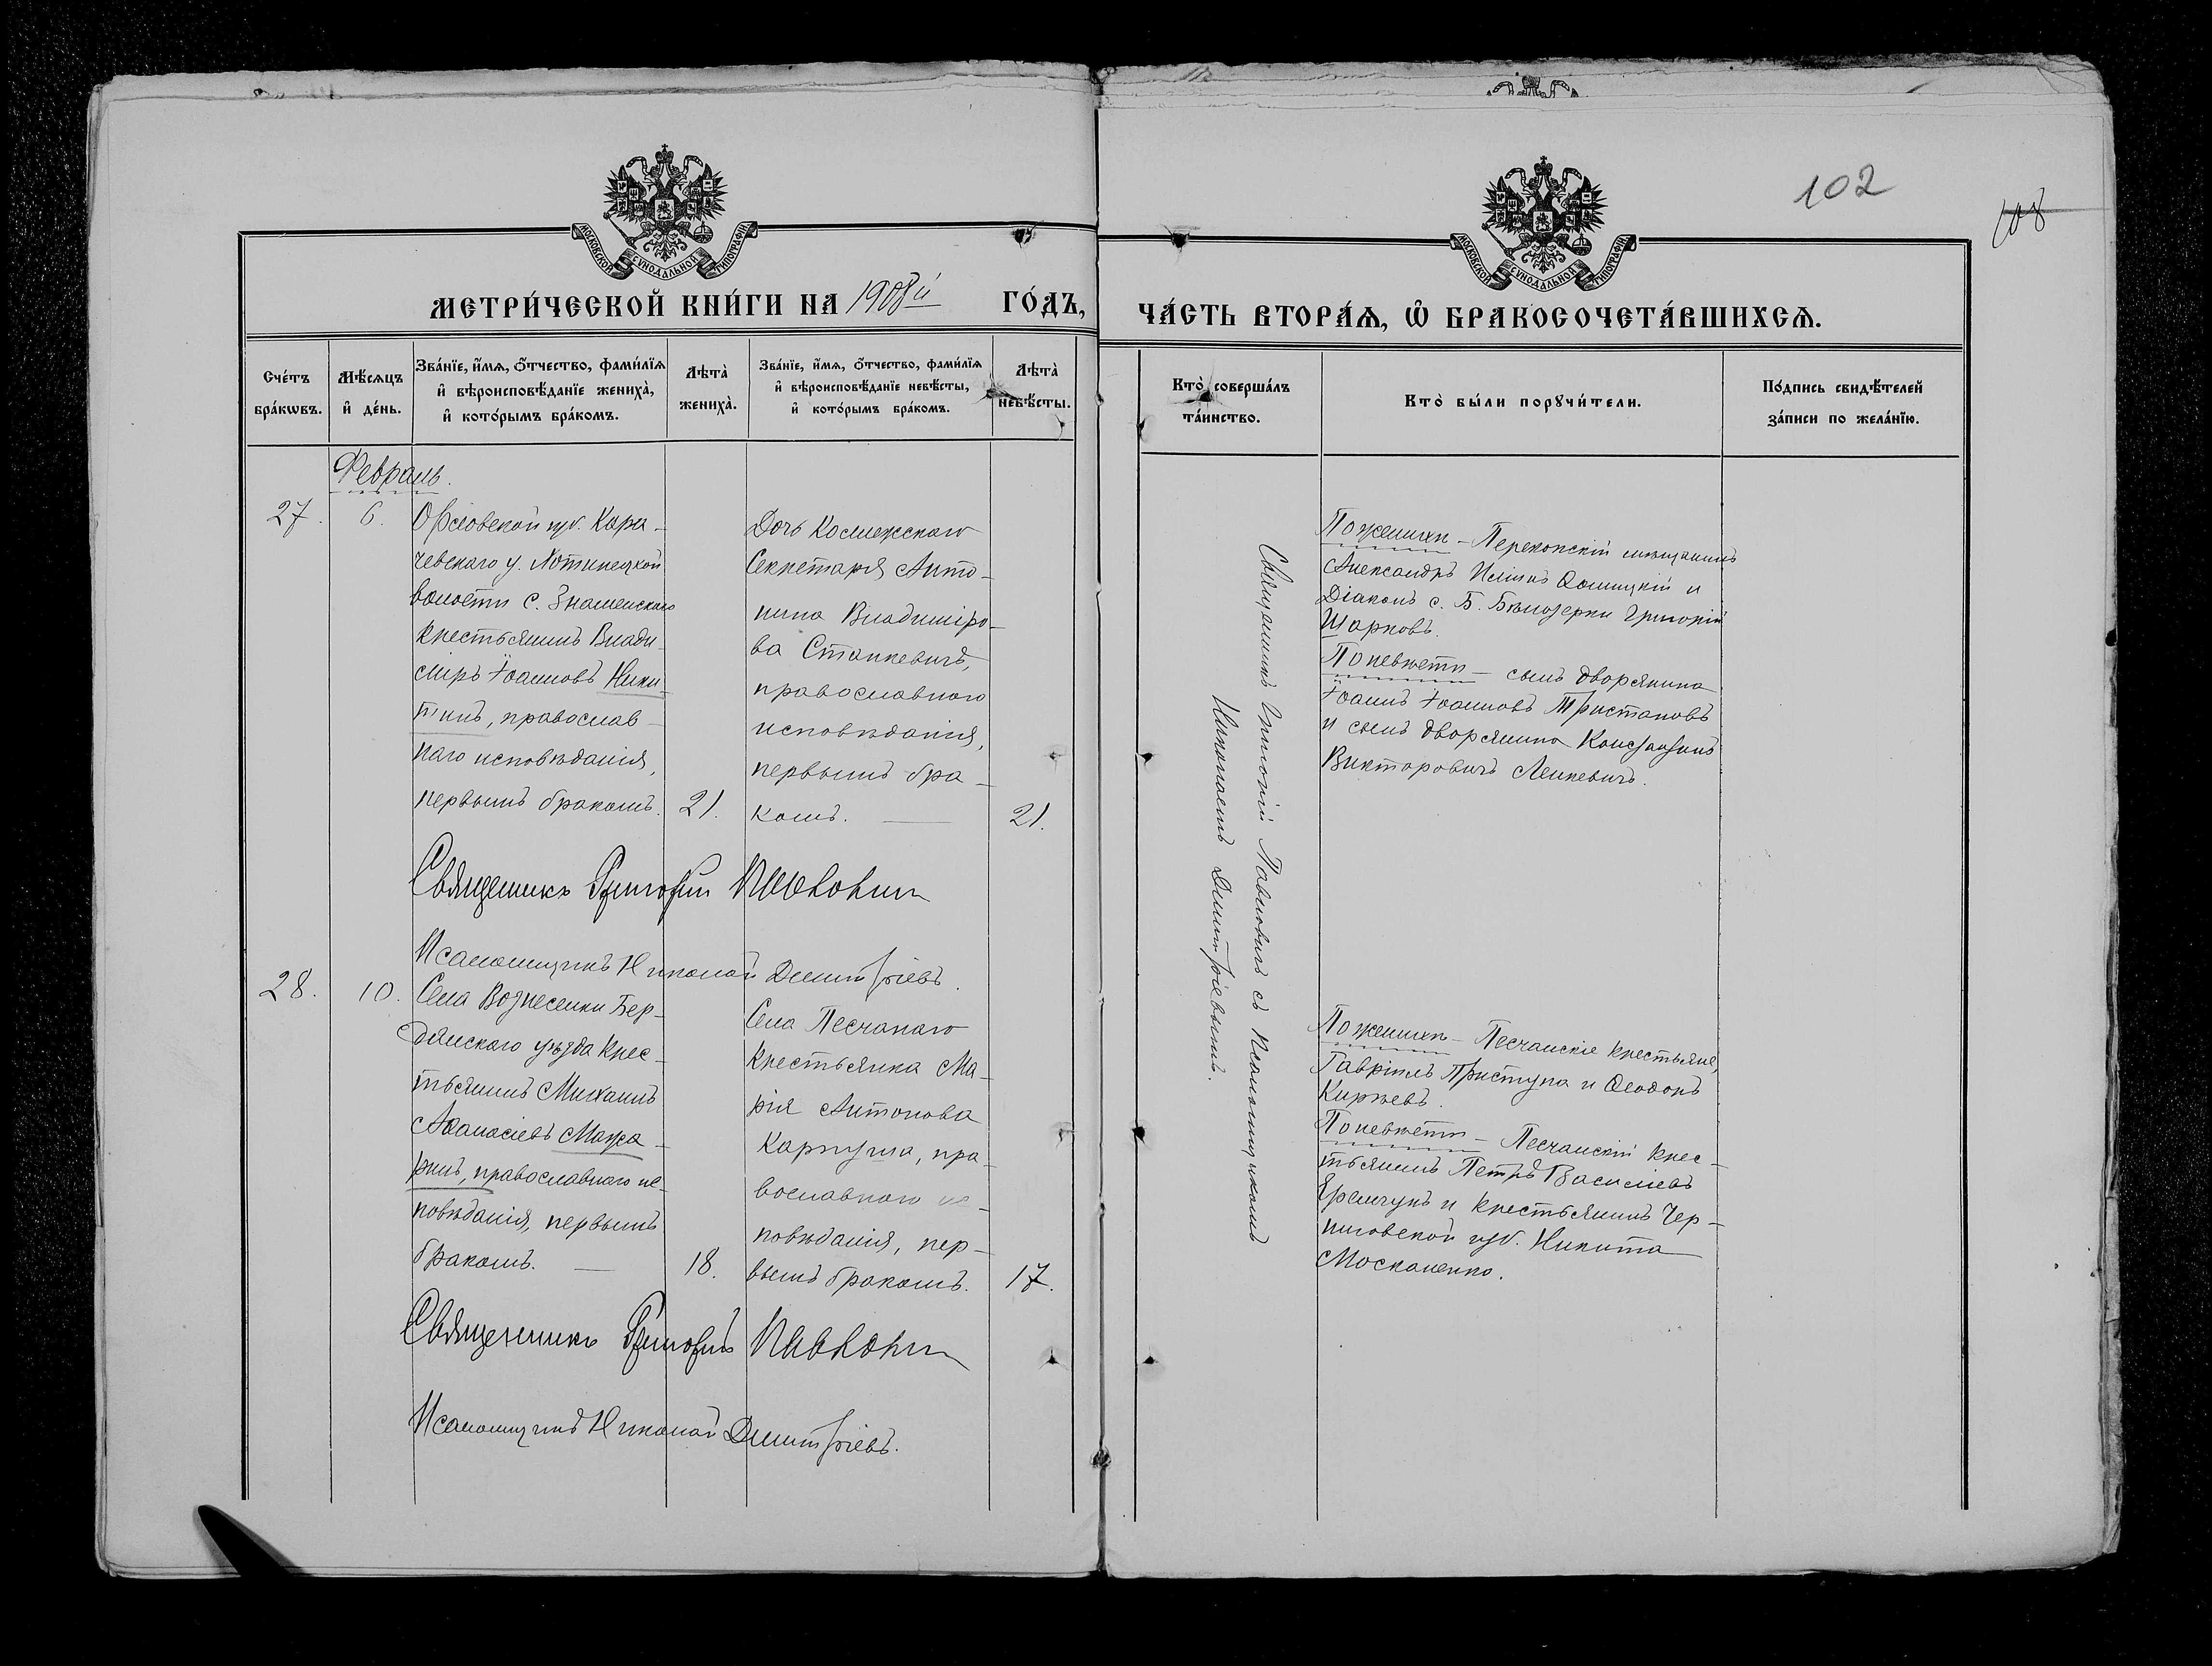 102
108
МОСКОВСКОЙ СѴНОДАЛЬНОЙ ТИПОГРАФІИ
МОСКОВСКОЙ СѴНОДАЛЬНОЙ ТИПОГРАФІИ
МЕТРИ́ЧЕСКОЙ КНИ́ГИ НА 1908й ГО́ДЪ,
ЧА́СТЬ ВТОРА́Ѧ, Ѡ҆ БРАКОСОЧЕТА́ВШИХСѦ.
Сче́тъ
бра́кѡвъ.
Мѣ́сяцъ
и҆ де́нь.
Зва́нїе, и҆́мѧ, ѻ҆́тчество, фами́лїѧ
и҆ вѣроисповѣ́данїе жениха̀,
и҆ кото́рымъ бра́комъ.
Лѣта̀
жениха̀.
Зва́нїе, и҆́мѧ, ѻ҆́тчество, фами́лїѧ
и҆ вѣроисповѣ́данїе невѣ́сты,
и҆ кото́рымъ бра́комъ.
Лѣта̀
невѣ́сты.
Кто̀ соверша́лъ
та́инство.
Кто̀ бы́ли порꙋчи́тели.
По́дпись свидѣ́телей
за́писи по жела́нїю.
Февраль.
27.
6.
Орловской губ. Кара-
чевскаго у. Хотинецкой
волости с. Знаменскаго
крестьянинъ Влади-
міръ Іоанновъ Ники-
тинъ, православ-
наго исповѣданія,
первымъ бракомъ.
21.
Дочь Коллежскаго
Секретаря Анто-
нина Владиміро-
ва Станкевичъ,
православнаго
исповѣданія,
первымъ бра-
комъ.
21.
Священникъ Григорій Павловичъ съ Псаломщикомъ
Николаемъ Димитріевымъ.
По женихѣ - Перекопскій мѣщанинъ
Александръ Иліинъ и
Діаконъ с. Б. Бѣлозерки Григорій
Шарковъ.
По невѣстѣ - сынъ дворянина
Іоаннъ Іоанновъ Тристановъ
и сынъ дворянина Константинъ
Викторовичъ Ленкевичъ.
Священникъ Григорій
Псаломщикъ Николай Димитріевъ.
28.
10.
Села Вознесенки Бер-
дянскаго уѣзда крес-
тьянинъ Михаилъ
Аѳанасіевъ Мака-
ринъ, православнаго ис-
повѣданія, первымъ
бракомъ.
18.
Села Песчанаго
крестьянка Ма-
рія Антонова
Карпуша, пра-
вославнаго ис-
повѣданія, пер-
вымъ бракомъ.
17.
По женихѣ - Песчанскіе крестьяне,
Гавріилъ Приступа и Ѳеодоръ
Кирѣевъ.
По невѣстѣ - Песчанскій крес-
тьянинъ Петръ Василіевъ
Яремчукъ и крестьянинъ Чер-
ниговской губ. Никита
Москаленко.
Священникъ Григорій
Псаломщикъ Николай Димитріевъ.